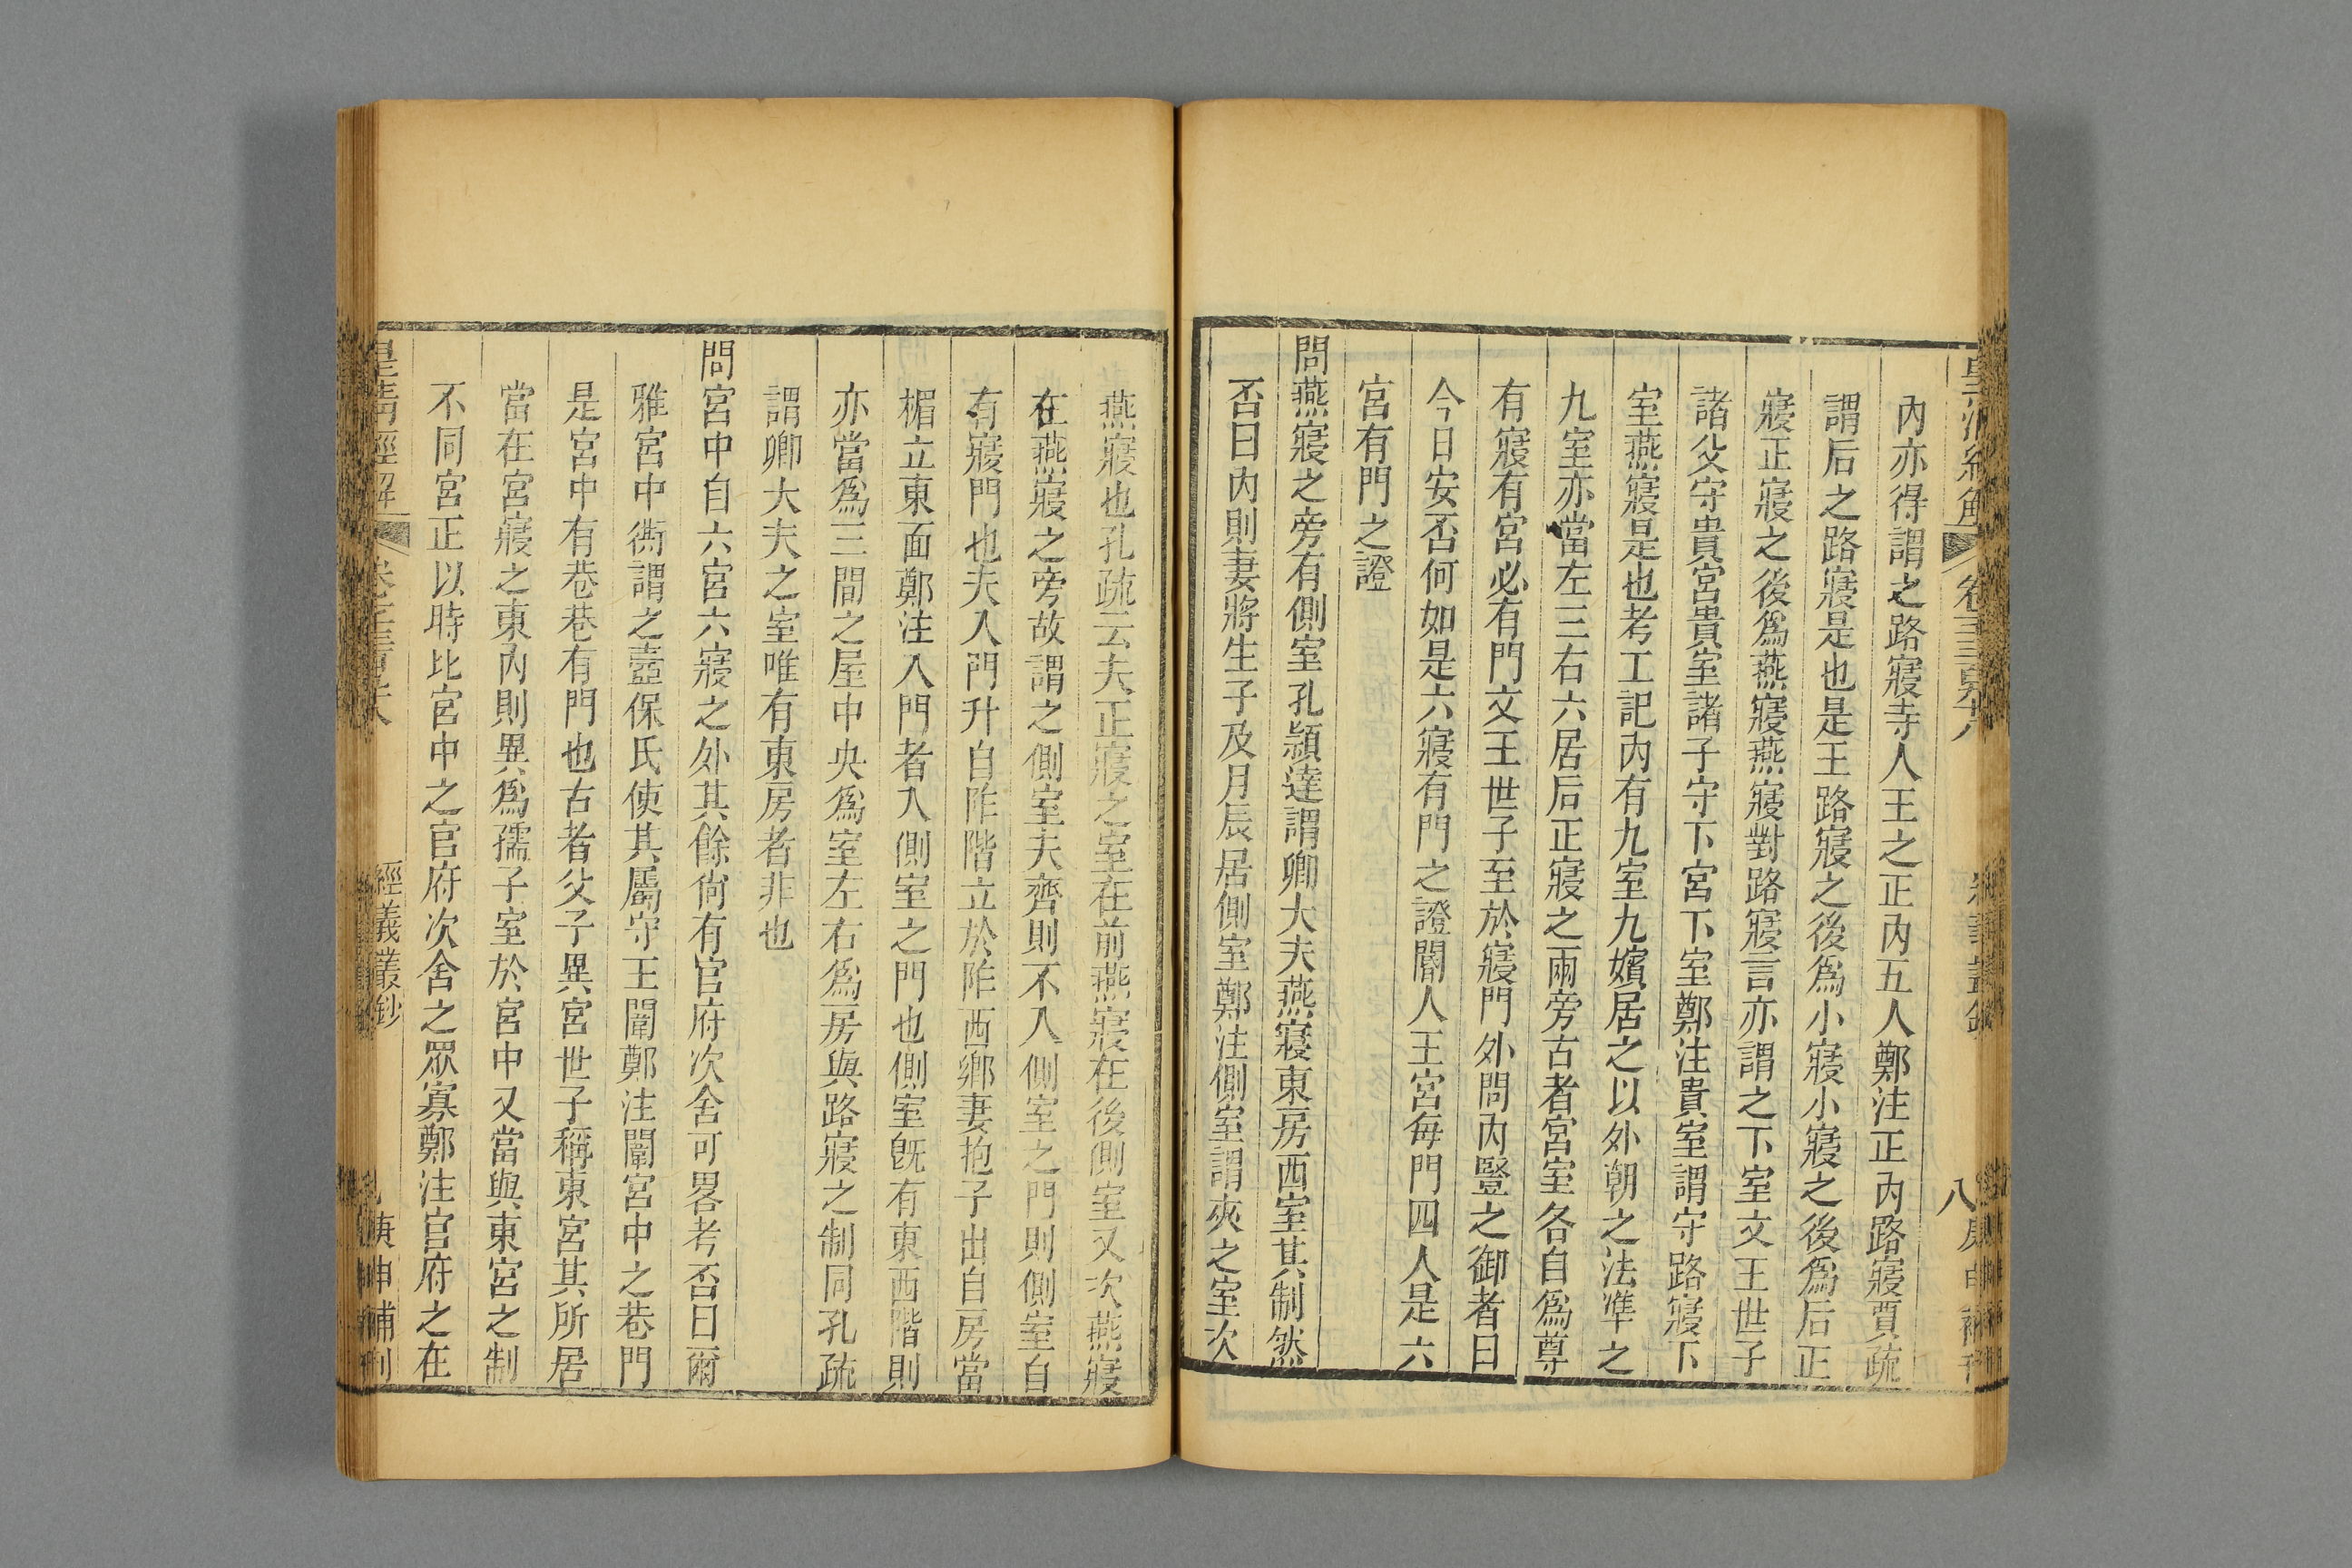 內亦得謂之路寢寺人王之正內五人鄭注正內路寢賈疏
謂后之路寢是也是王路寢之後爲小寢小寢之後爲后正
寢正寢之後爲燕寢燕寢對路寢言亦謂之下室文王世子
諸父守貴宮貴室諸子守下宮下室鄭注貴室謂守路寢下
室燕寢是也考工記內有九室九嬪居之以外朝之法準之
九室亦當左三右六居后正寢之兩旁古者宮室各自爲尊
有寢有宮必有門文王世子至於寢門外問內豎之御者曰
今日安否何如是六寢有門之證閽人王宮每門四人是六
宮有門之證
問燕寢之旁有側室孔穎達謂卿大夫燕寢東房西室其制然
否曰內則妻將生子及月辰居側室鄭注側室謂夾之室次
燕寢也孔疏云夫正寢之室在前燕寢在後側室又次燕寢
在燕寢之旁故謂之側室夫齊則不入側室之門則側室自
有寢門也夫入門升自阼階立於阼西鄉妻抱子出自房當
楣立東面鄭注入門者入側室之門也側室旣有東西階則
亦當爲三間之屋中央爲室左右爲房與路寢之制同孔疏
謂卿大夫之室唯有東房者非也
問宮中自六宮六寢之外其餘尙有官府次舍可畧考否曰爾
雅宮中衖謂之壼保氏使其屬守王闈鄭注闈宮中之巷門
是宮中有巷巷有門也古者父子異宮世子稱東宮其所居
當在宮寢之東內則異爲孺子室於宮中又當與東宮之制
不同宮正以時比宮中之官府次舍之眾寡鄭注官府之在
皇清經解
經義叢鈔
庚申補刊